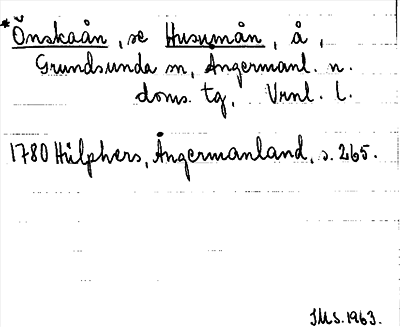 *Önskaån, se Husumån, å,
Grundsunda sn, Ångermanl. n.
doms. tg, Vrnl. l.
1780 Hülphers, Ångermanland, s. 265.
IMS. 1963.